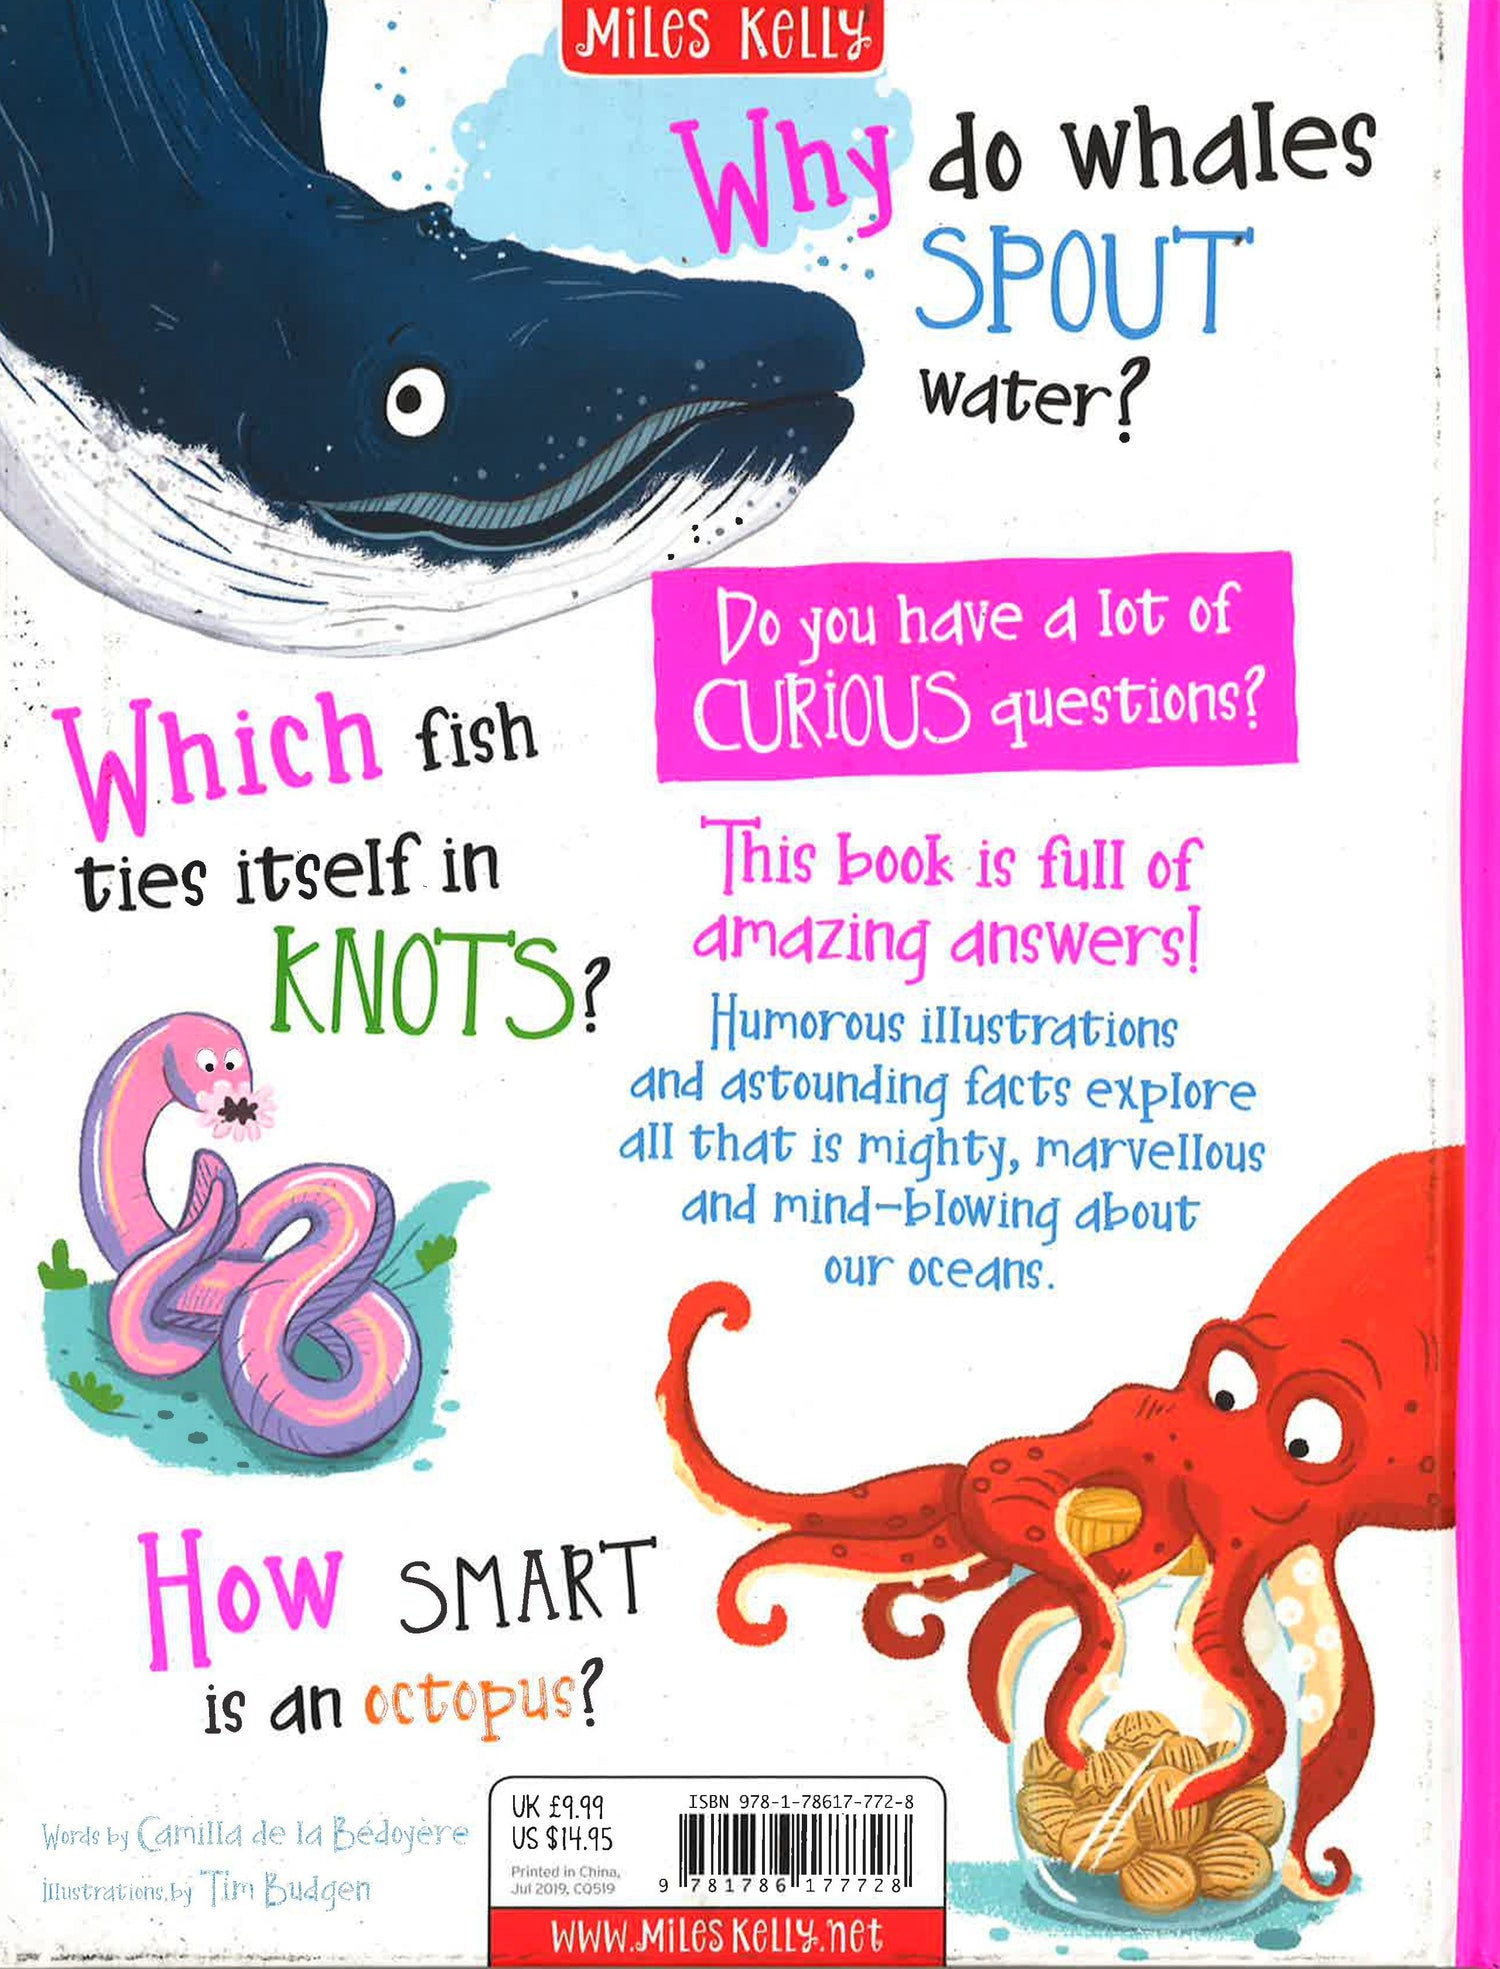 Miles Kelly
Why do whales
SPOUT
water?
Do you have a lot of
CURiOUS questions?
Which fish
ties itself in
KNOTS?
This book is full of
amazing answers!
Humorous illustrations
and astounding facts explore
all that is mighty, marvellous
and mind-blowing about
our oceans.
How SMART
is an octopus?
Words by Camilla de la Bédoyère
Illustrations by Tim Budgen
UK £9.99
US $14.95
Printed in China,
Jul 2019, CQ519
ISBN 978-1-78617-772-8
9 781786 177728
www.MilesKelly.net